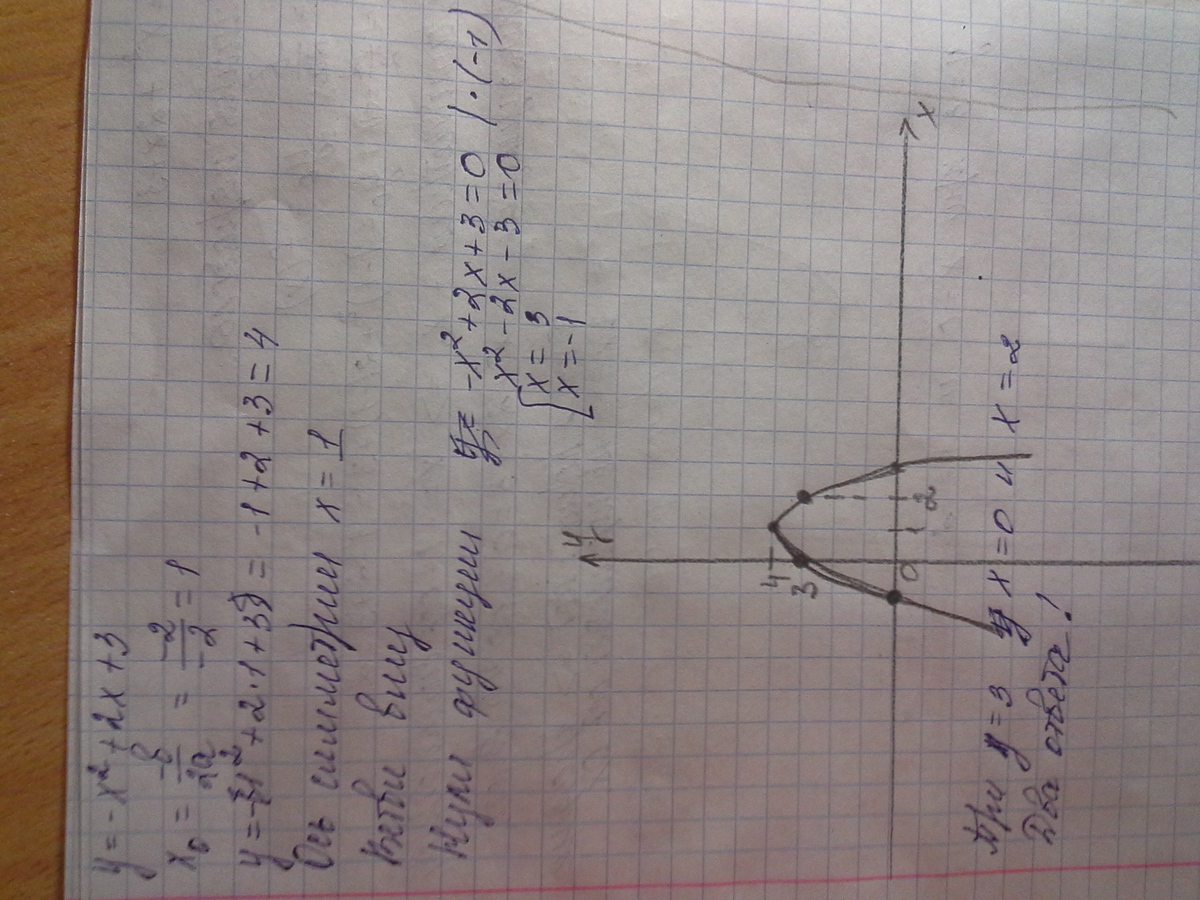 y = -x² + 2x + 3
x₀ = -b/2a = -2/-2 = 1
y = -1² + 2·1 + 3 = -1 + 2 + 3 = 4
Ось симметрии x = 1
Ветви вниз
Нули функции -x² + 2x + 3 = 0 | · (-1)
x² - 2x - 3 = 0
[ x = 3
x = -1
y
4
3
0
1
2
x
При y = 3 x = 0 и x = 2
Два ответа!